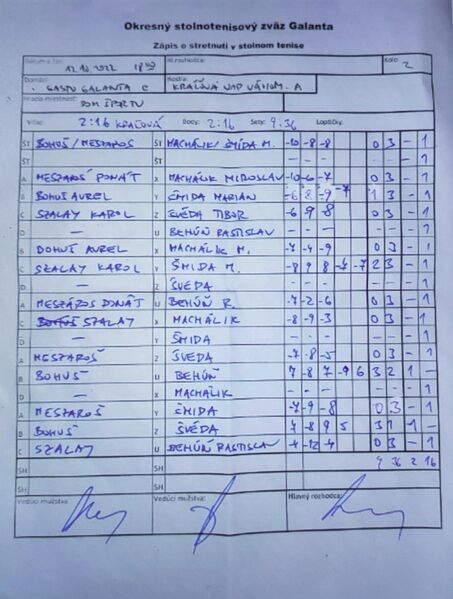 Okresný stolnotenisový zväz Galanta
Zápis o stretnutí v stolnom tenise
Dátum a čas: 12.10.2022 Hl.rozhodca: Kolo 2
Domáci: GASTO GALANTA C Hostia: KRÁĽOVÁ NAD VÁHOM. A
Hracia miestnosť: DOM ŠPORTU
Víťaz: 2:16 KRÁĽOVÁ Body: 2:16 Sety: 9:36 Loptičky:
ŠT BOHUŠ / MESZÁROS ŠT MACHÁLIK / ŠMIDA M. -10 -8 -8 0 3 - 1
ŠT — ŠT - - - - 1
A MESZÁROŠ DONÁT X MACHÁLIK MIROSLAV -10 -6 -7 0 3 - 1
B BOHUŠ AUREL Y ŠMIDA MARIÁN -6 8 -9 -7 1 3 - 1
C SZALAY KAROL Z ŠVÉDA TIBOR -6 9 -8 0 3 - 1
D — U BEHÚŇ RASTISLAV - - - - 1
B BOHUŠ AUREL X MACHÁLIK M. -7 -4 -9 0 3 - 1
C SZALAY KAROL Y ŠMIDA M. -8 9 8 -7 2 3 - 1
D — Z ŠVÉDA - - - 1
A MESZÁROS DONÁT U BEHÚŇ R. -7 -2 -6 0 3 - 1
C SZALAY X MACHÁLIK -8 -9 -3 0 3 - 1
D — Y ŠMIDA - - - - 1
A MESZAROŠ Z ŠVEDA -7 -8 -5 0 3 - 1
B BOHUŠ U BEHÚŇ 7 -8 7 -9 6 3 2 1 -
D — X MACHÁLIK - - - - 1
A MESZAROŠ Y ŠMIDA -7 -9 -8 0 3 - 1
B BOHUŠ Z ŠVÉDA 8 9 5 3 1 1 -
C SZALAY U BEHÚŇ RASTISLAV -4 -12 -4 0 3 - 1
SH SH 9 36 2 16
SH SH
Vedúci mužstva: Vedúci mužstva: Hlavný rozhodca: